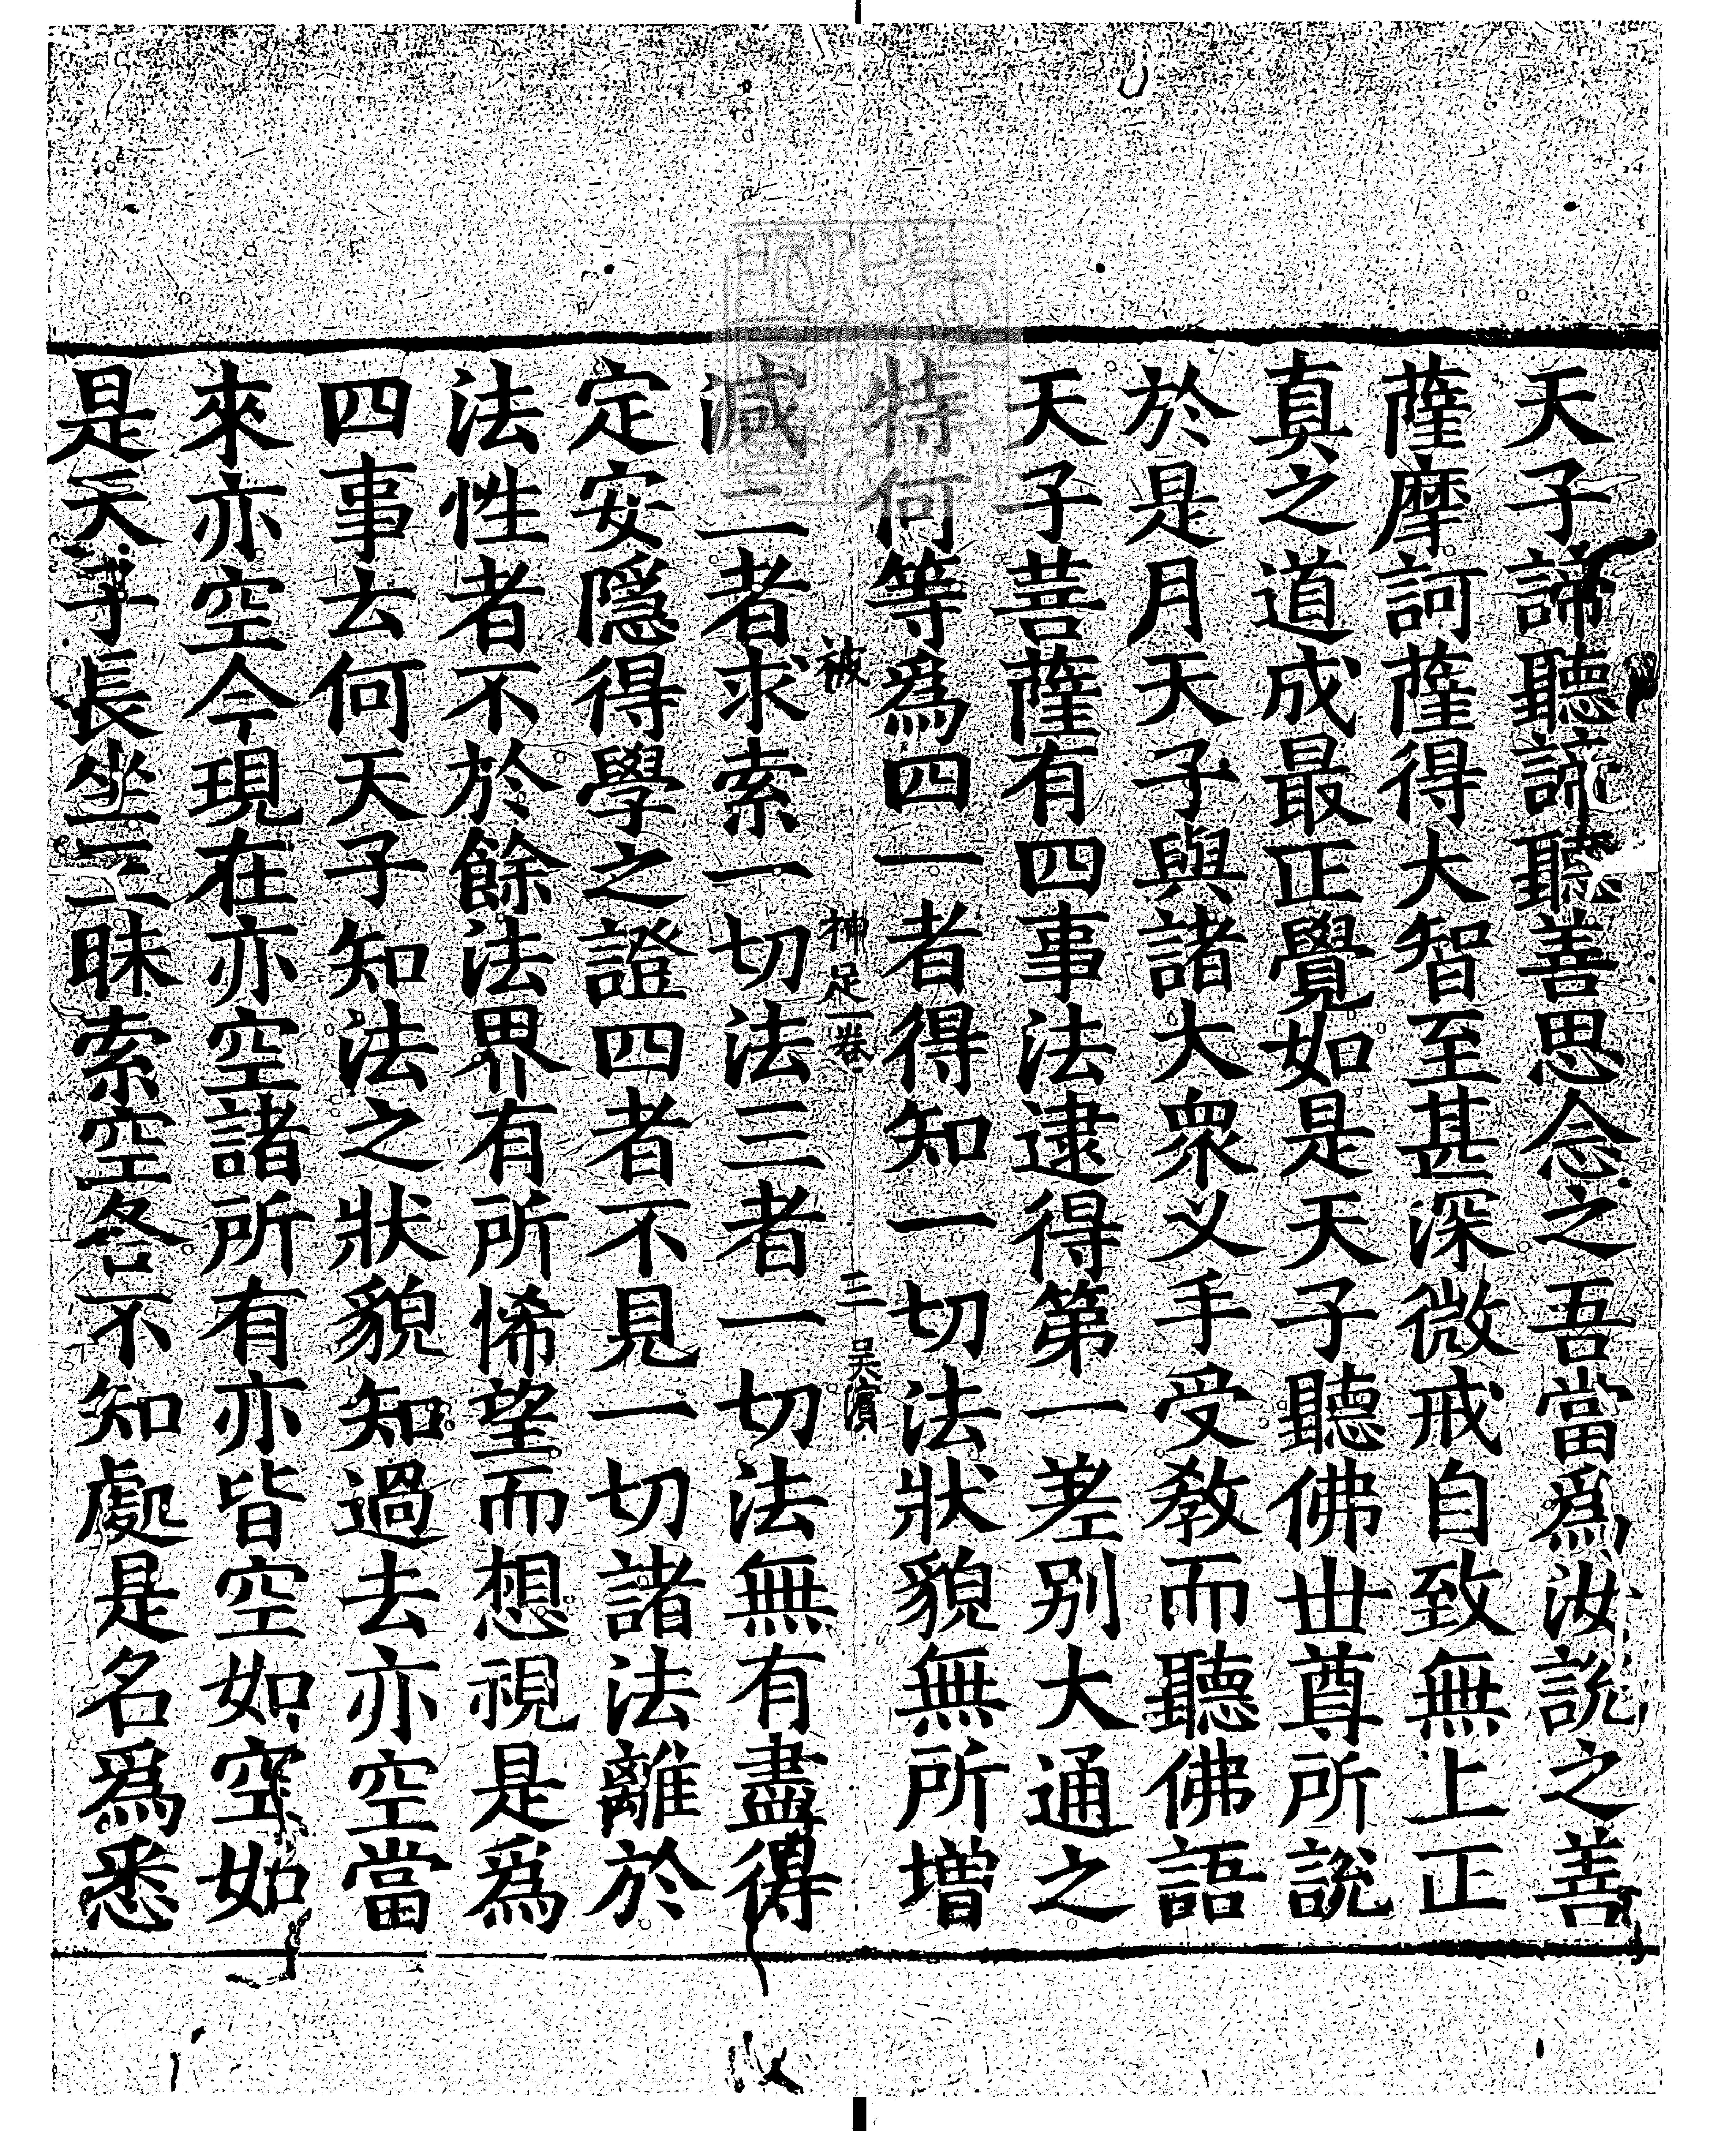 天子諦聽諦聽善思念之吾當爲汝說之善
薩摩訶薩得大智至甚深微戒自致無上正
真之道成最正覺如是天子聽佛世尊所說
於是月天子與諸大衆义手受教而聽佛語
天子菩薩有四事法逮得第一差别大通之
特何等爲四一者得知一切法狀貌無所增
被 神足一卷 三 吴濱
減二者求索一切法三者一切法無有盡得
定安隱得學之證四者不見一切諸法離於
法性者不於餘法界有所悕望而想視是爲
四事去何天子知法之狀貌知過去亦空當
來亦空今現在亦空諸所有亦皆空如空如
是天子長坐三昧索空各不知處是名爲悉